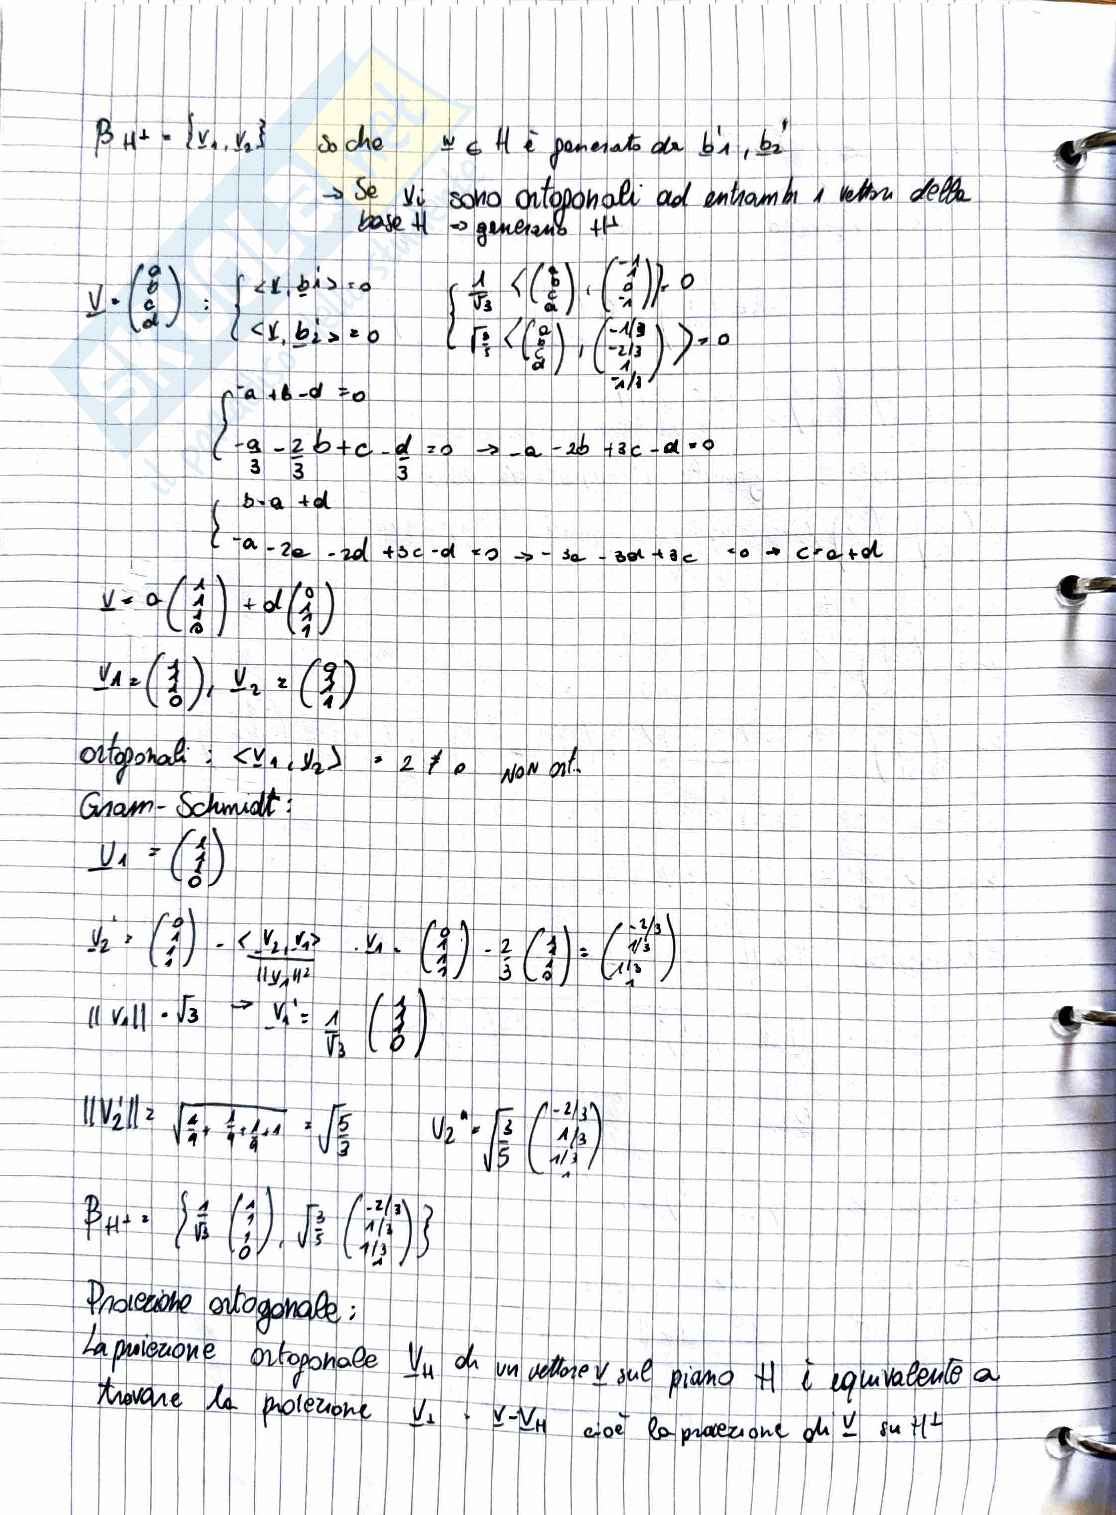 β_H⊥ = {v1, v2} so che w ∈ H è generato da b'1, b2'
→ Se vi sono ortogonali ad entrambi i vettori della
base H → generano H⊥
v = (a b c d) : { <v, bi> = 0 { 1/√3 <(a b c d), (-1 1 0 -1)> = 0
<v, b2> = 0 √3/5 <(a b c d), (-1/3 -2/3 1 -1/3)> = 0
{ -a + b - d = 0
-a/3 - 2/3 b + c - d/3 = 0 → -a - 2b + 3c - d = 0
{ b = a + d
-a - 2a - 2d + 3c - d = 0 → -3a - 3d + 3c = 0 → c = a + d
v = a (1 1 1 0) + d (0 1 1 1)
v1 = (1 1 1 0), v2 = (0 1 1 1)
ortogonali : <v1, v2> = 2 ≠ 0 NON ort.
Gram-Schmidt:
v1 = (1 1 1 0)
v2' = (0 1 1 1) - <v2, v1> / ||v1||² · v1 = (0 1 1 1) - 2/3 (1 1 1 0) = (-2/3 1/3 1/3 1)
||v1|| = √3 → v1' = 1/√3 (1 1 1 0)
||v2'|| = √(4/9 + 1/9 + 1/9 + 1) = √5/3 v2" = √3/5 (-2/3 1/3 1/3 1)
β_H⊥ = { 1/√3 (1 1 1 0), √3/5 (-2/3 1/3 1/3 1) }
Proiezione ortogonale:
La proiezione ortogonale vH di un vettore v sul piano H è equivalente a
trovare la proiezione v⊥ = v - vH cioè la proiezione di v su H⊥